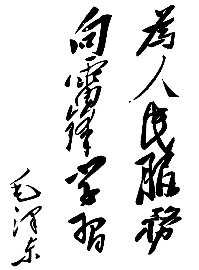 為人民服務
向雷鋒学習
毛泽东